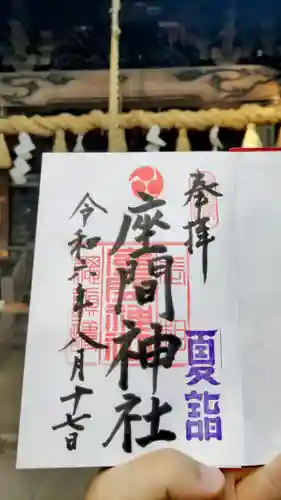 奉拝
夏詣
座間神社
令和六年八月十七日